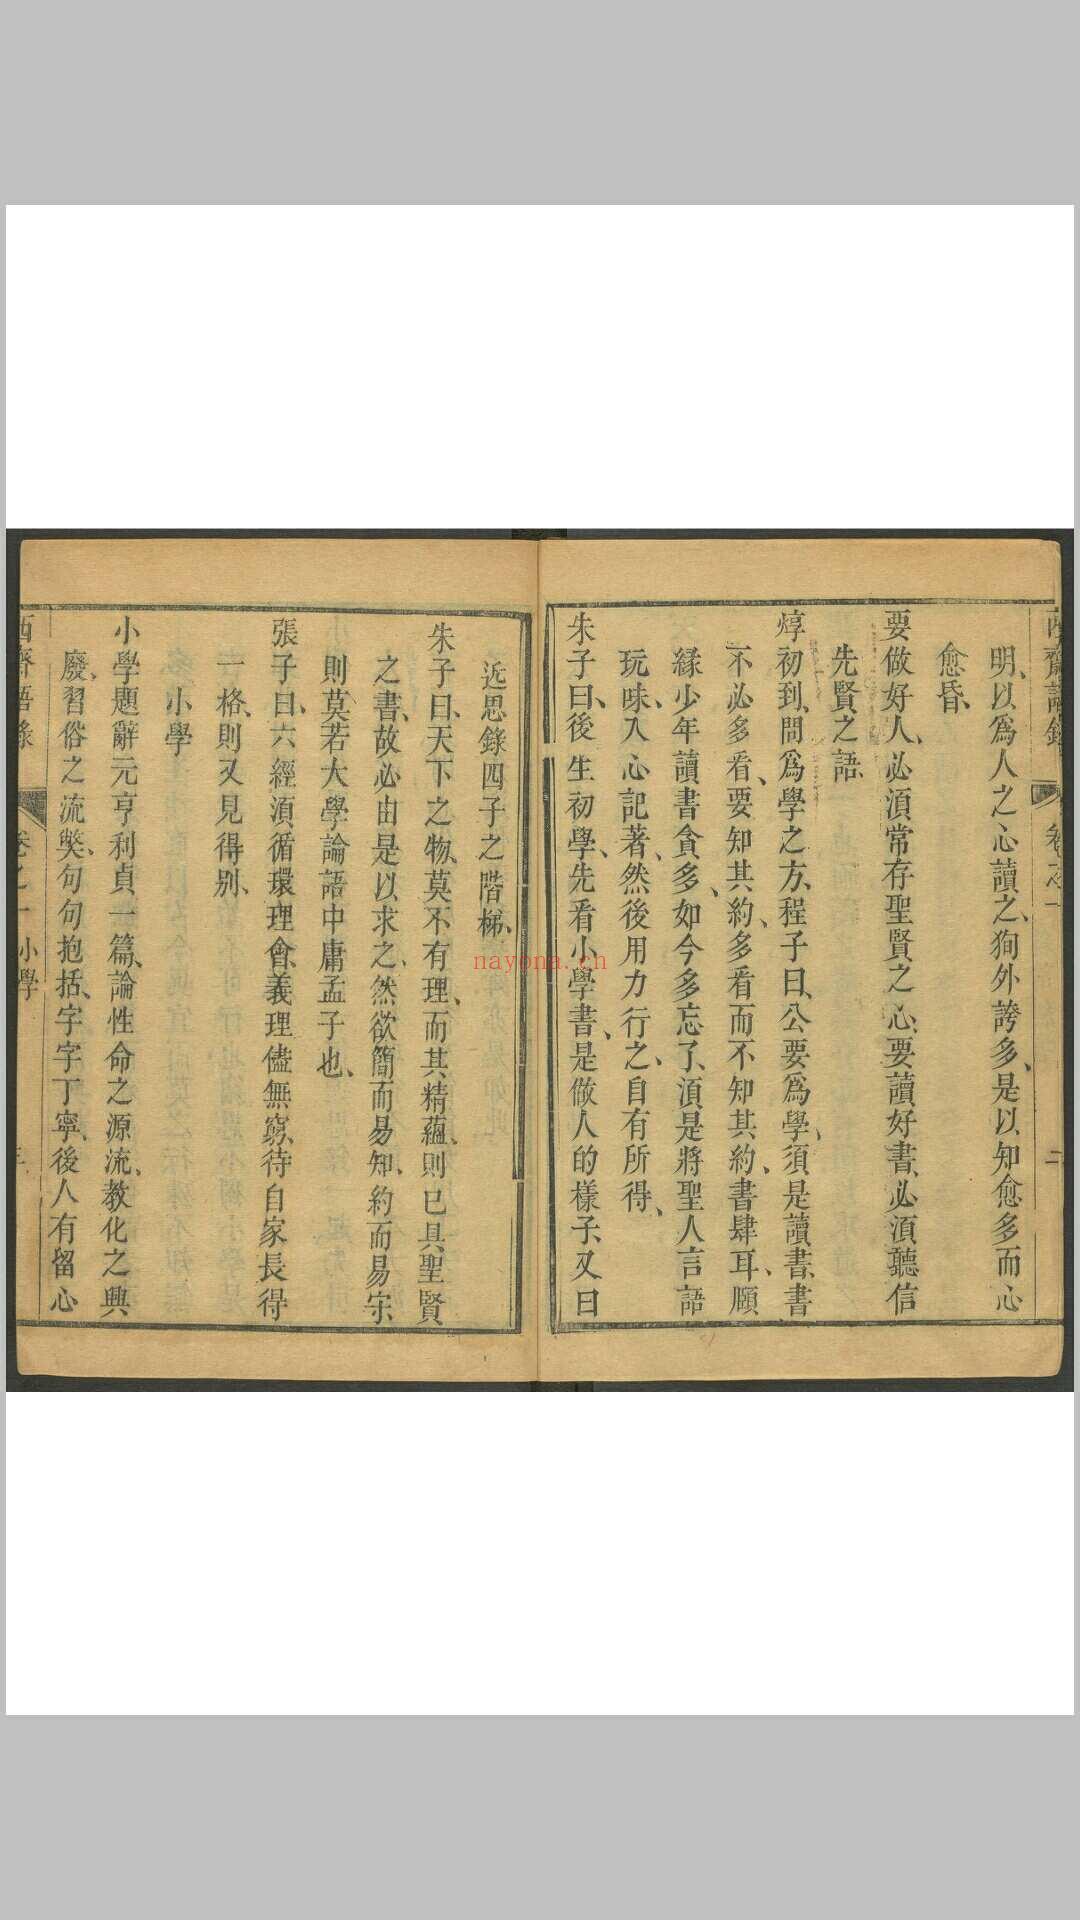 明、以爲人之心讀之、狥外誇多、是以知愈多而心
愈昏、
要做好人、必須常存聖賢之心、要讀好書、必須聽信
先賢之語、
焞初到、問爲學之方、程子曰、公要爲學、須是讀書、書
不必多看、要知其約、多看而不知其約、書肆耳、願
緣少年讀書貪多、如今多忘了、須是將聖人言語
玩味、入心記著、然後用力行之、自有所得、
朱子曰、後生初學、先看小學書、是做人的樣子、又曰
近思錄四子之階梯、
朱子曰、天下之物、莫不有理、而其精蘊、則已具聖賢
之書、故必由是以求之、然欲簡而易知、約而易守、
則莫若大學論語中庸孟子也、
張子曰、六經須循環理會、義理儘無窮、待自家長得
一格、則又見得別、
小學
小學題辭元亨利貞一篇、論性命之源流、教化之興
廢、習俗之流獘、句句抱括、字字丁寧、後人有留心
西齋語錄
卷之一
小學
nayona.cn